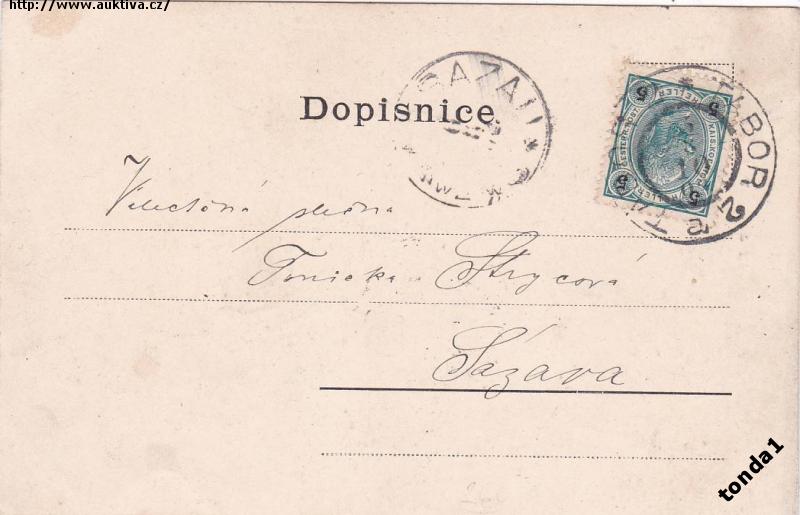 http://www.auktiva.cz/
Dopisnice
SAZAU
TABOR 2
5 5
5 5
HELLER
Velectěná slečna
Tonička Strycová
Sázava
tonda1